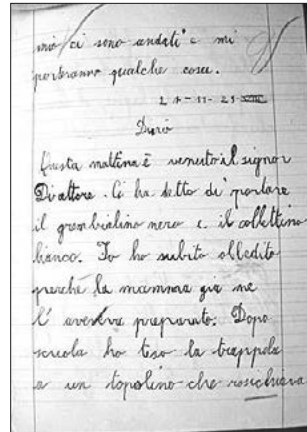 mia ci sono andati e mi
porteranno qualche cosa.
24-11-25
Diario
Questa mattina è venuto il signor
Direttore. Ci ha detto di portare
il grembialino nero e il collettino
bianco. Io ho subito obbedito
perché la mamma già me
l'aveva preparato. Dopo
scuola ho teso la trappola
a un topolino che rosichiava